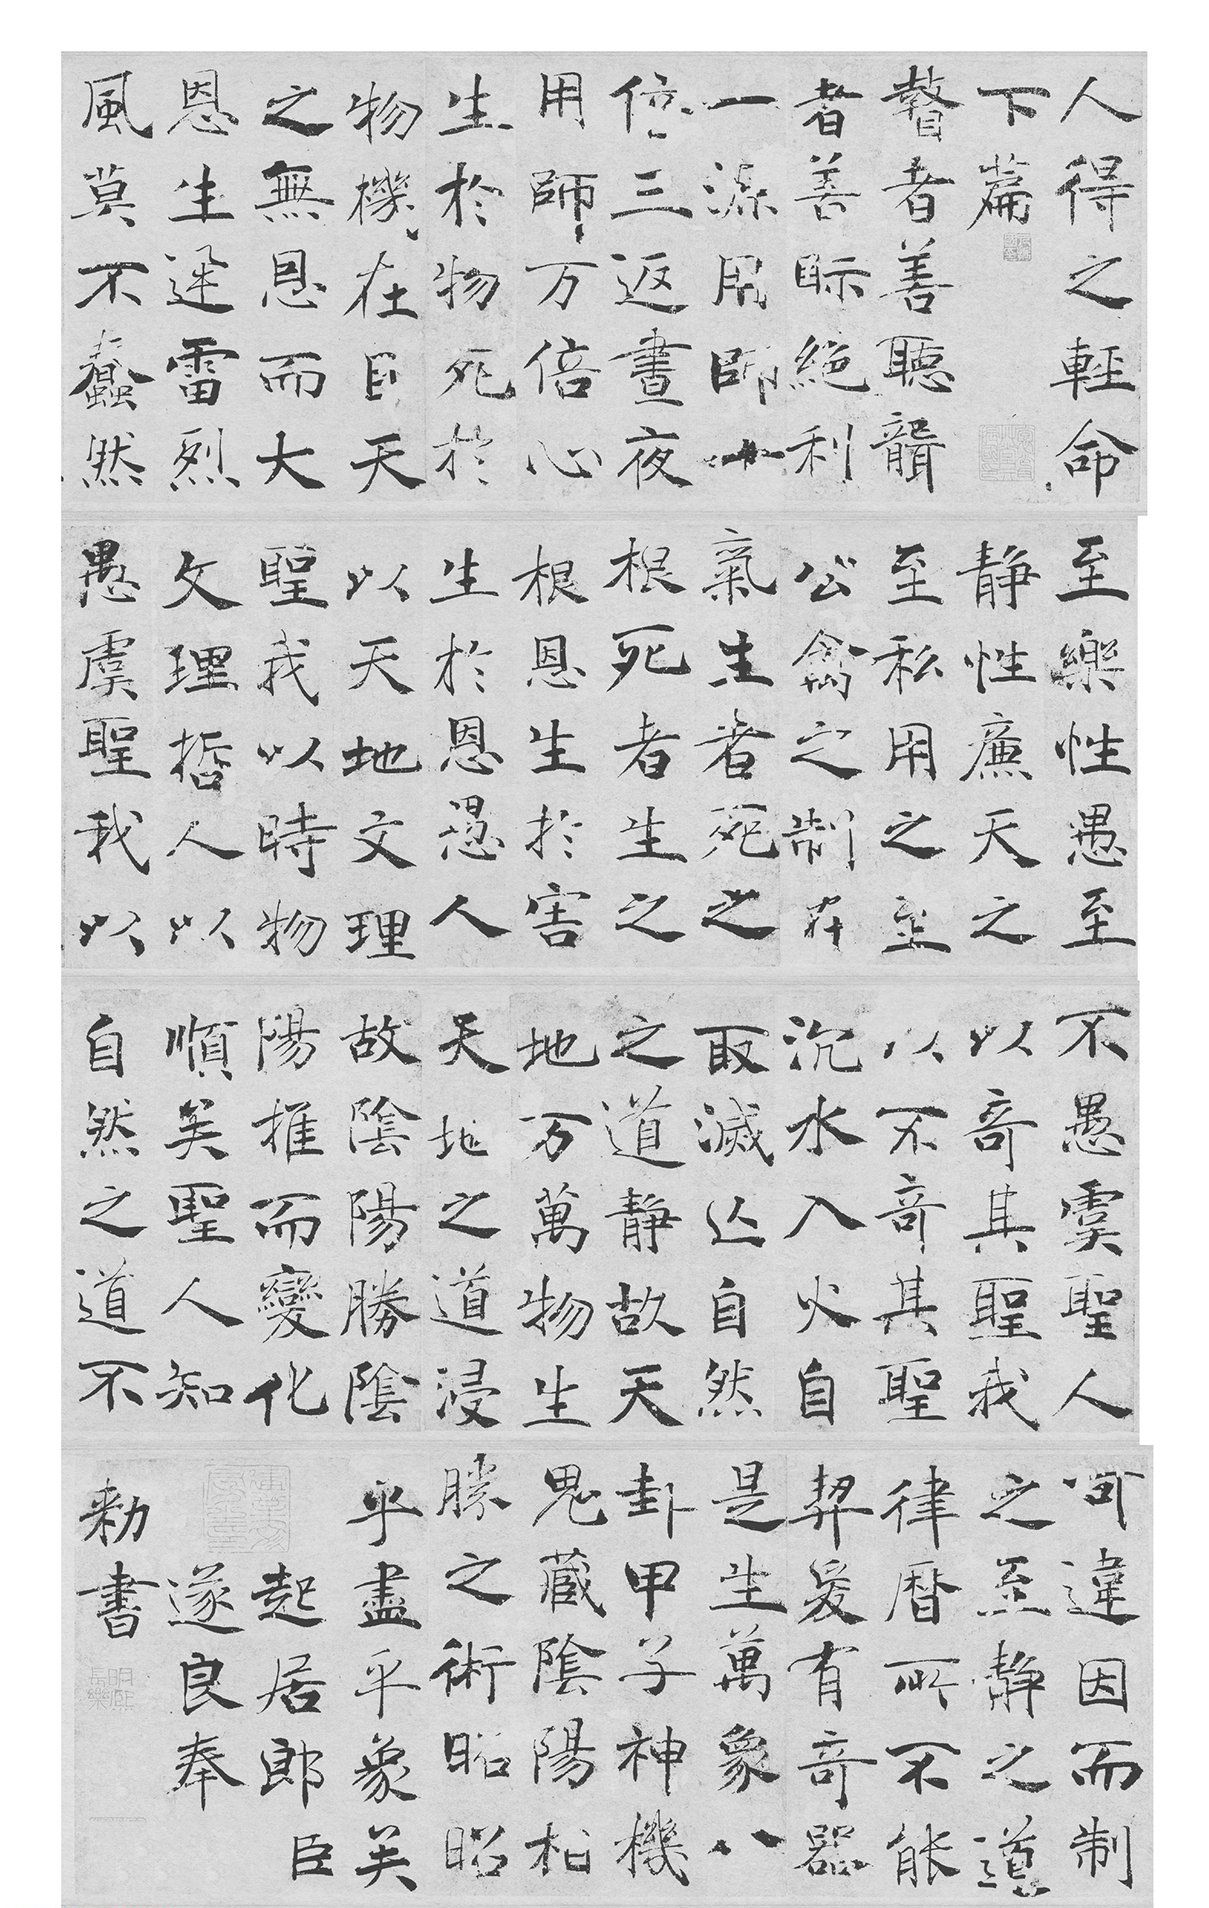 人得之輕命
下篇
瞽者善聽聾
者善眎絶利
一源用師十
倍三返晝夜
用師万倍心
生於物死於
物機在目天
之無恩而大
恩生迅雷烈
風莫不蠢然
至樂性愚至
静性廉天之
至私用之至
公禽之制在
氣生者死之
根死者生之
根恩生於害
生於恩愚人
以天地文理
聖我以時物
文理哲人以
愚虞聖我以
不愚虞聖人
以奇其聖我
以不奇其聖
沉水入火自
取滅亡自然
之道静故天
地万萬物生
天地之道浸
故陰陽勝陰
陽推而變化
順矣聖人知
自然之道不
可違因而制
之至静之道
律曆所不能
契爰有奇器
是生萬象八
卦甲子神機
鬼藏陰陽相
勝之術昭昭
乎盡乎象矣
起居郎臣
遂良奉
勑書